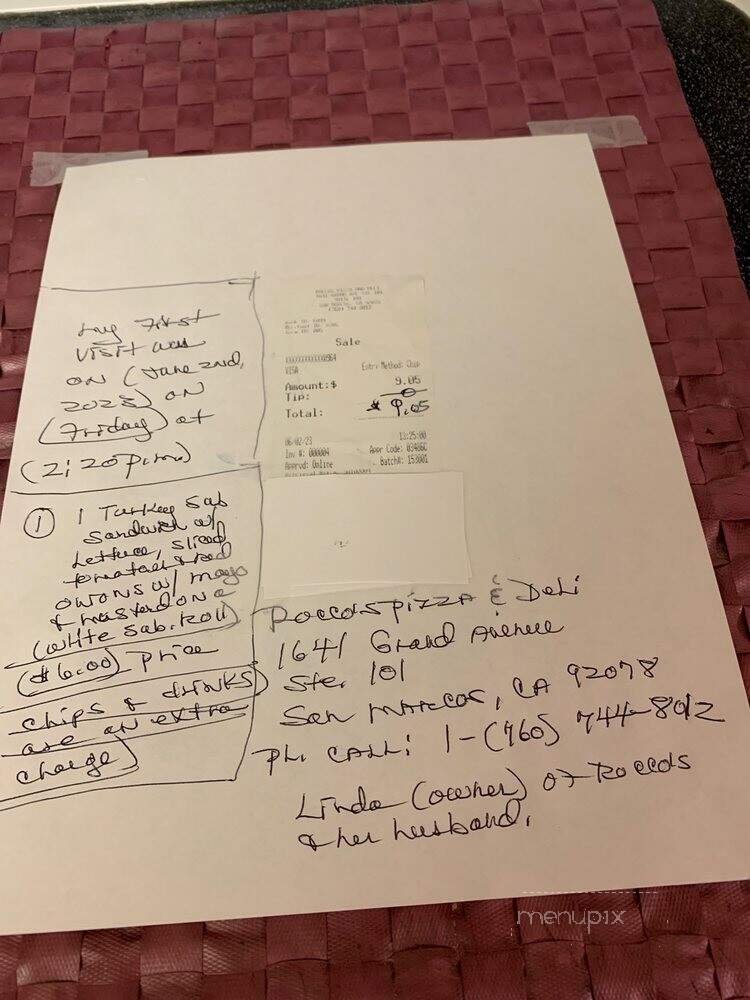 my First
visit was
on (June 2nd,
2023) on
(Friday) at
(2:20 p.m.)
① 1 Turkey Sub
Sandwich w/
Lettuce, sliced
tomatoes & red
onions w/ mayo
& mustard on a
(white sub. roll)
($6.00) Price
chips & drinks)
are an extra
charge)
Sale
XXXXXXXXXXXX0564
VISA Entry Method: Chip
Amount:$ 9.05
Tip: 0
Total: $ 9.05
06/02/23 13:25:00
Inv #: 000004 Appr Code: 03486C
Apprvd: Online Batch#: 153001
Roccos Pizza & Deli
1641 Grand Avenue
Ste. 101
San Marcos, CA 92078
Ph. CALL: 1-(760) 744-8012
Linda (owner) of Roccos
& her husband.
menupix